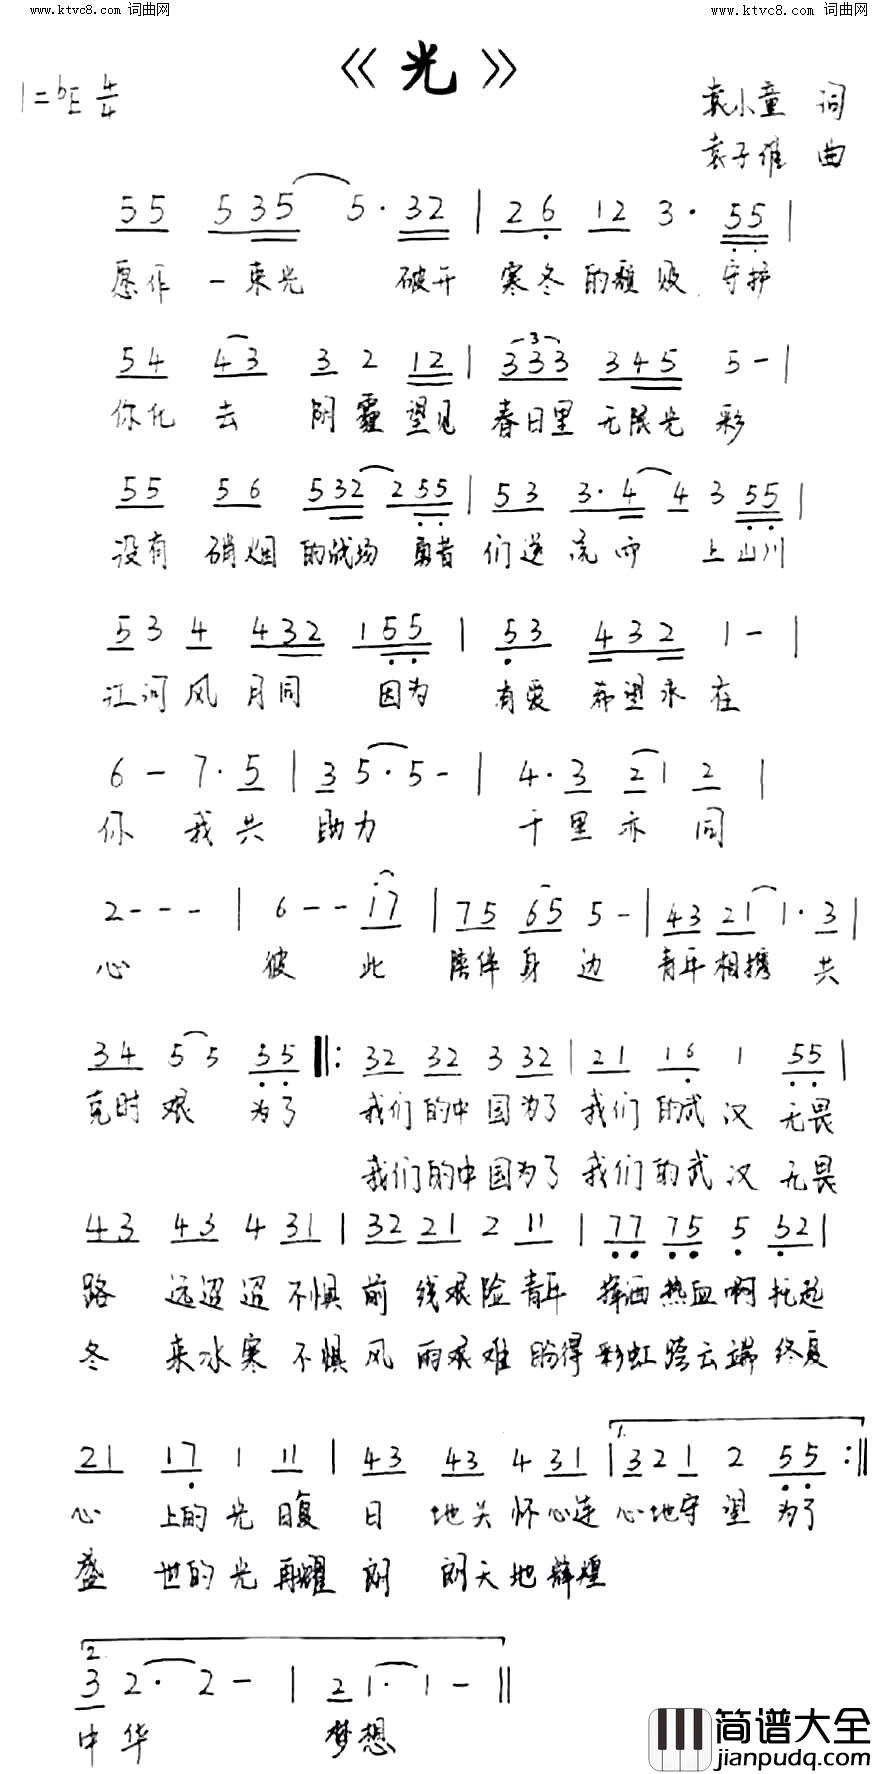 www.ktvc8.com 词曲网 www.ktvc8.com 词曲网
《光》
1=♭E 4/4
袁小童 词
袁子维 曲
55 535 5· 32 | 26 12 3· 55 |
愿作 一束光 破开 寒冬的颓败 守护
54 43 3 2 12 | 333 345 5 - |
你化去 阴霾望见 春日里无限光彩
55 56 532 255 | 53 3·4 4 3 55 |
没有 硝烟的战场 勇者们逆流而上山川
53 4 432 155 | 53 432 1 - |
江河风月同 因为 有爱希望永在
6 - 7· 5 | 3 5· 5 - | 4· 3 21 2 |
你 我共 助力 千里亦 同
2 - - - | 6 - - 17 | 75 65 5 - | 43 21 1· 3 |
心 彼 此 陪伴身边 青年相携 共
34 55 55 ‖: 32 32 3 32 | 21 16 1 55 |
克时艰 为了 我们的中国为了 我们的武汉 无畏
我们的中国为了 我们的武汉 无畏
43 43 4 31 | 32 21 2 11 | 77 75 5 52 |
路 远迢迢 不惧前线艰险青年 挥洒热血啊托起
冬 来冰寒 不惧风雨艰难盼得 彩虹跨云端终复
21 17 1 11 | 43 43 4 31 | 1. 32 1 2 55 :‖
心 上的光日复日 地关怀心连心地守望 为了
盛 世的光再耀朗 朗天地辉煌
2. 3 2· 2 - | 21· 1 - ‖
中华 梦想
简谱大全
jianpudq.com